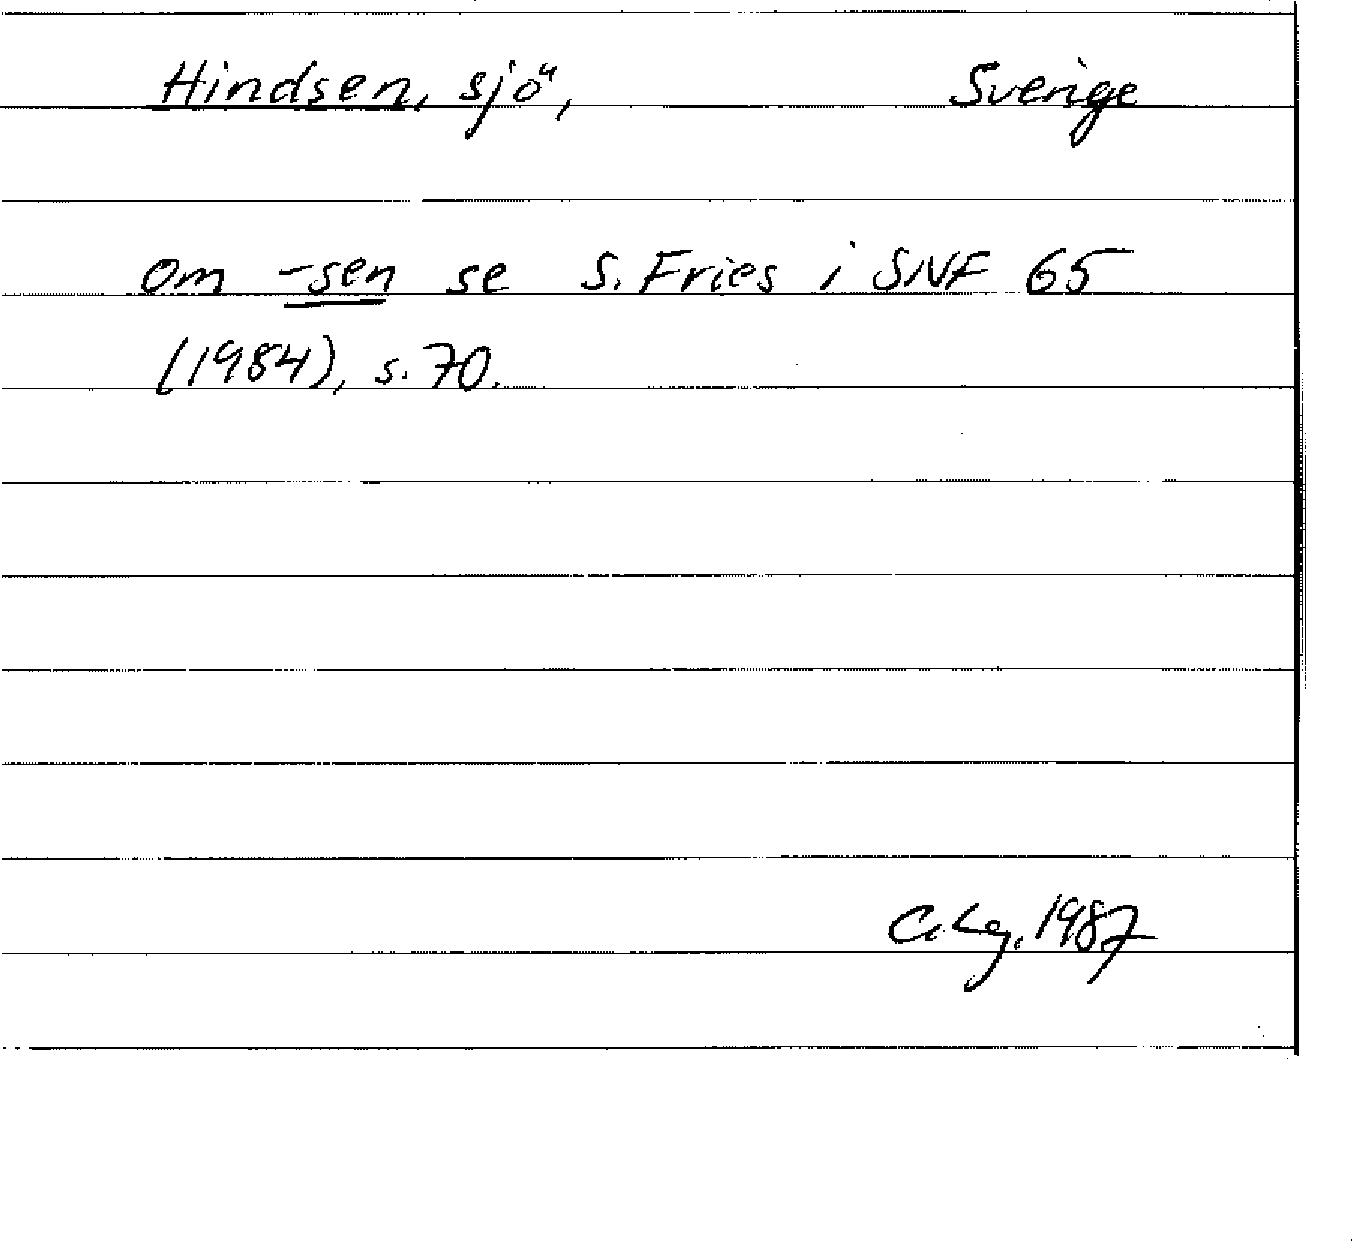 Hindsen, sjö, Sverige
om -sen se S. Fries i SNF 65
(1984), s. 70.
C. Lg. 1987